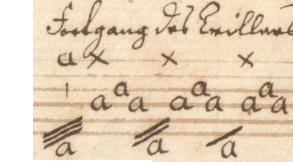 Fortgang des Trillers
a x x x
a a a a a a a a a
a a a